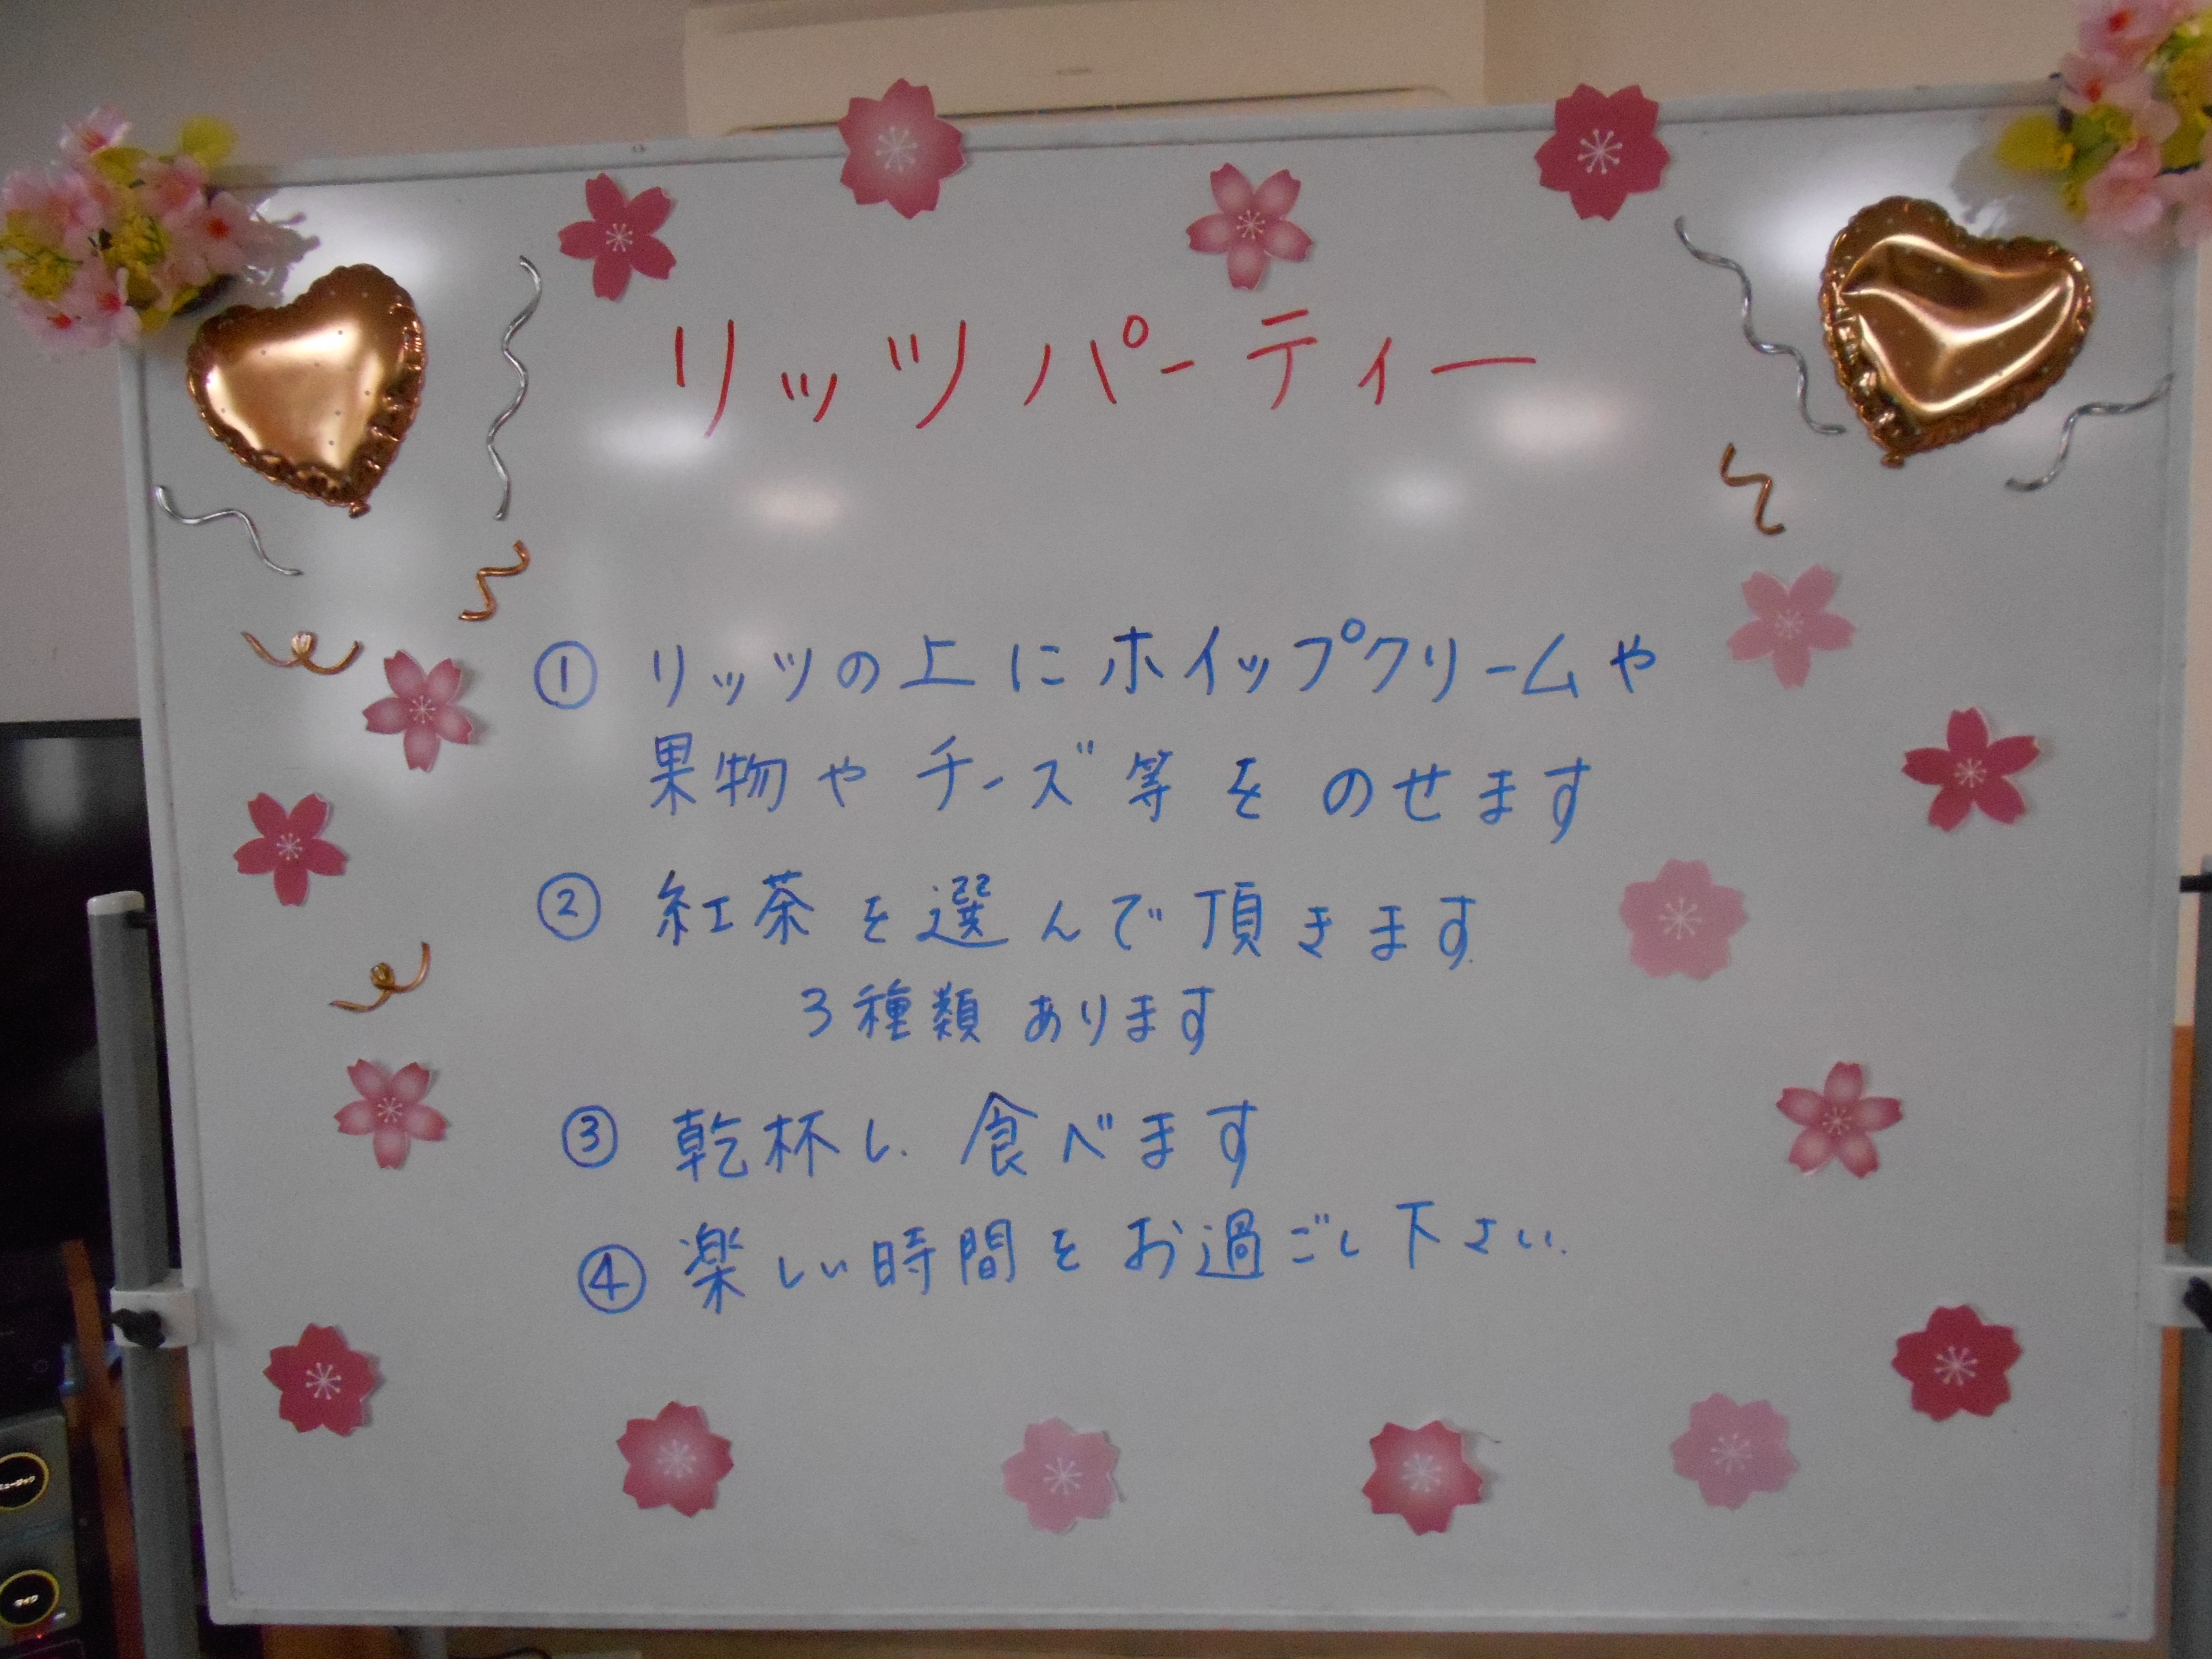 リッツパーティー
① リッツの上にホイップクリームや
果物やチーズ等をのせます
② 紅茶を選んで頂きます
3種類あります
③ 乾杯し、食べます
④ 楽しい時間をお過ごし下さい。
ミュージック
ライフ